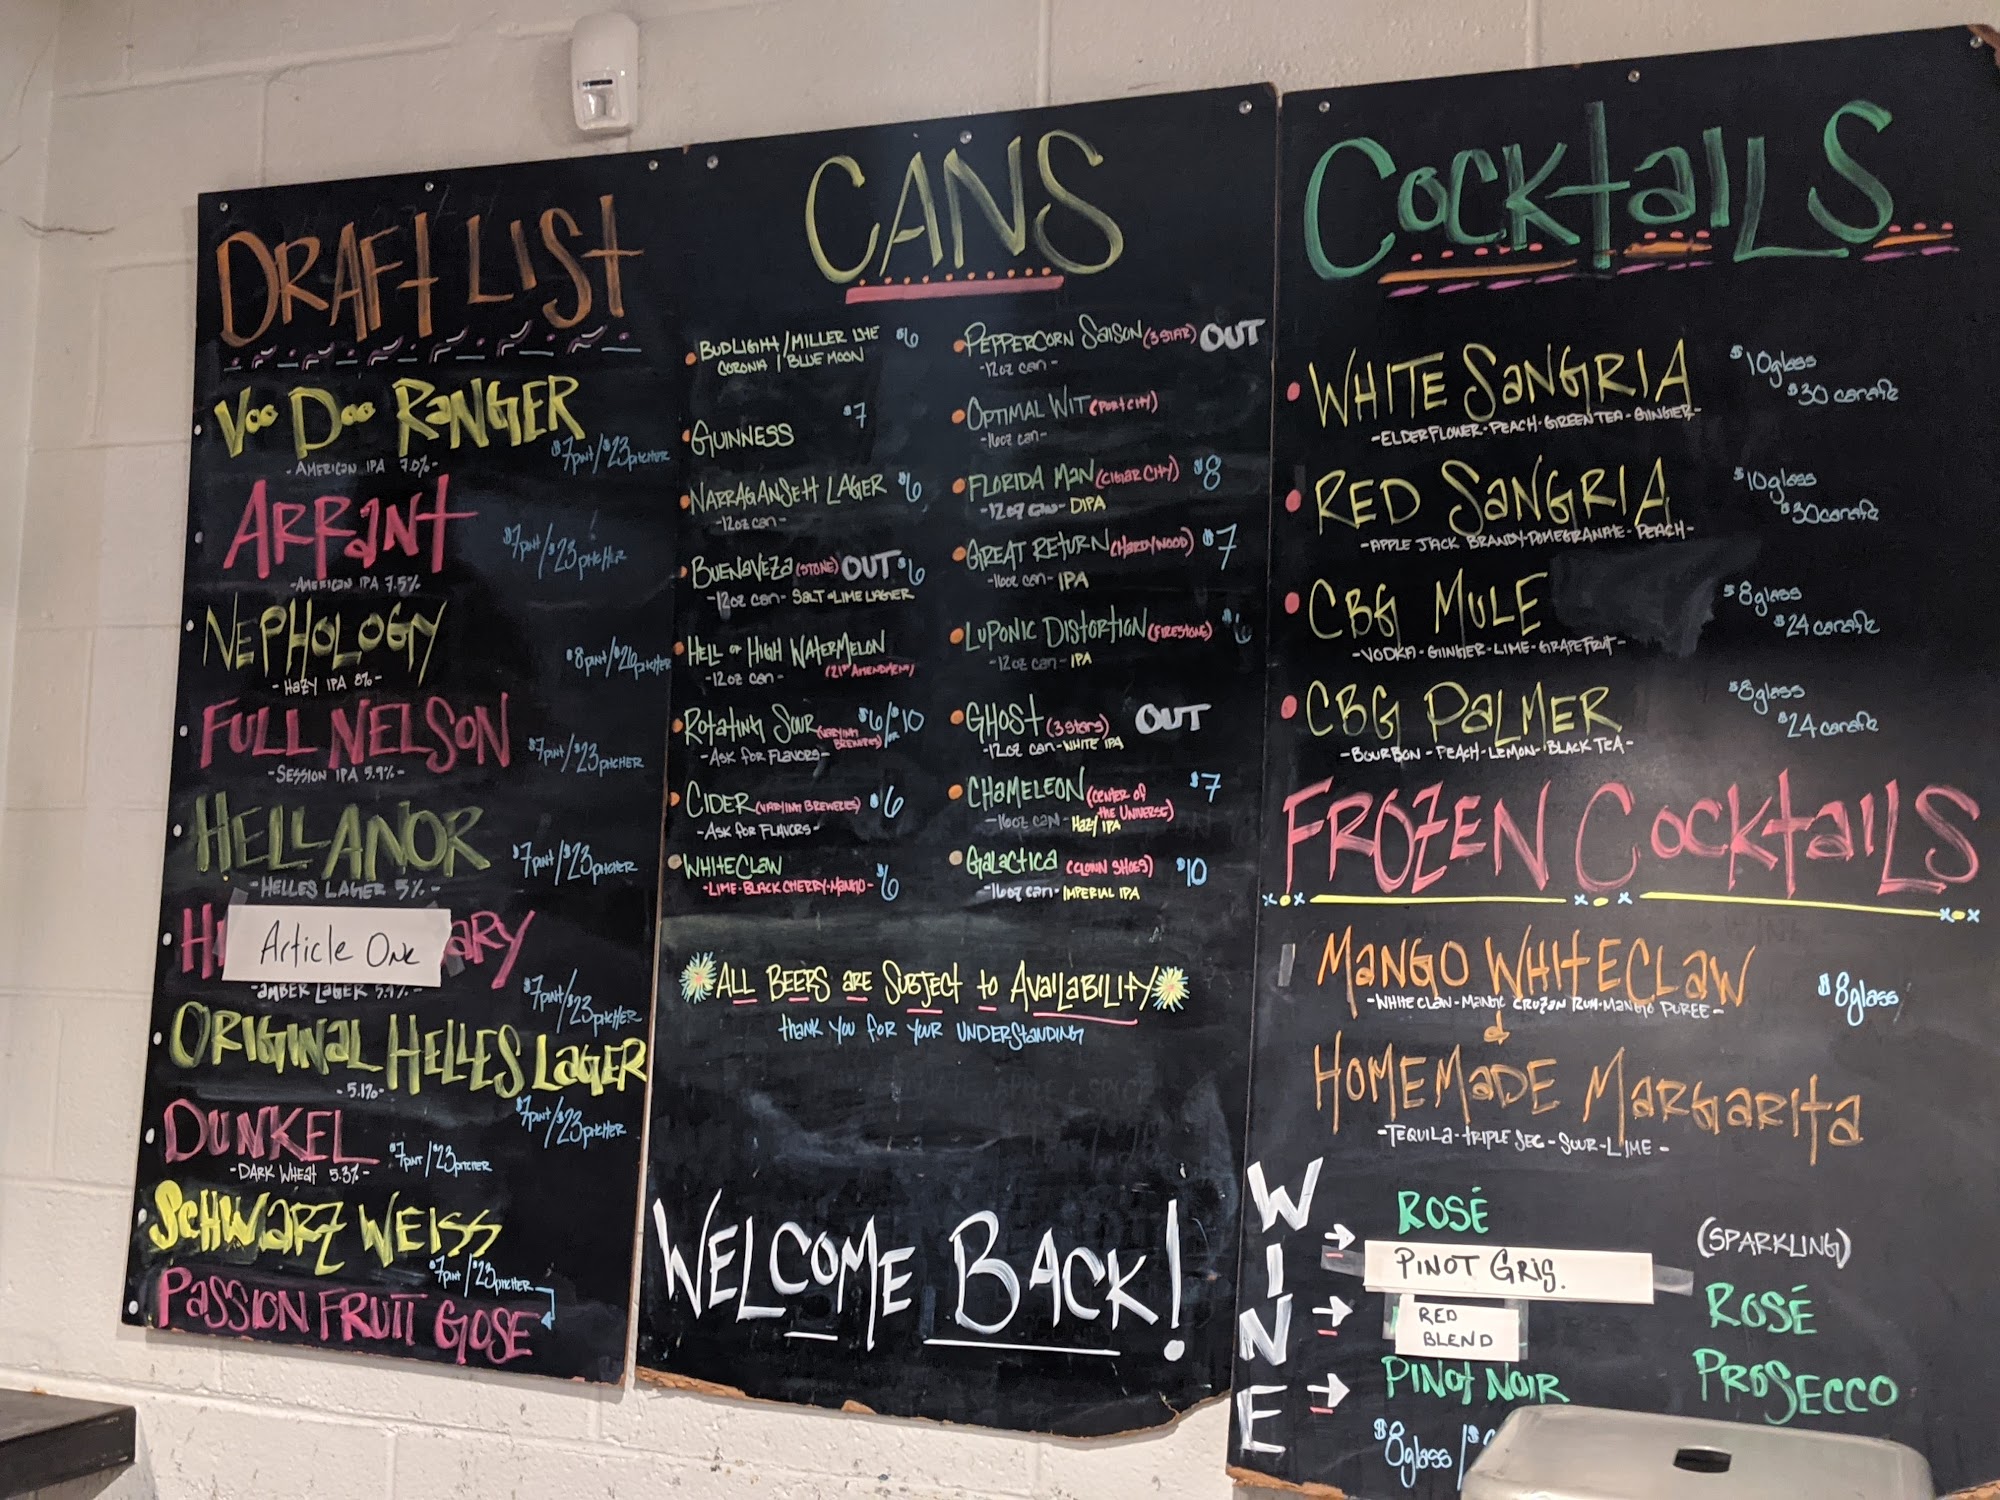 DRAFT LIST
VOO DOO RANGER
- AMERICAN IPA 7.0% -
$7 pint / $23 pitcher
ARRANT
- AMERICAN IPA 7.5%
$7 pint / $23 pitcher
NEPHOLOGY
- HAZY IPA 8% -
$8 pint / $26 pitcher
FULL NELSON
- SESSION IPA 5.9% -
$7 pint / $23 pitcher
HELLANOR
- HELLES LAGER 5% -
$7 pint / $23 pitcher
Article One
- AMBER LAGER
$7 pint / $23 pitcher
ORIGINAL HELLES LAGER
- 5.1% -
$7 pint / $23 pitcher
DUNKEL
- DARK WHEAT 5.3% -
$7 pint / $23 pitcher
SCHWARZ WEISS
$7 pint / $23 pitcher
PASSION FRUIT GOSE
CANS
BUDLIGHT / MILLER LITE $6
CORONA / BLUE MOON
GUINNESS $7
NARRAGANSETT LAGER $6
- 12oz can -
BUENAVEZA (STONE) OUT $6
- 12oz can - SALT-LIME LAGER
HELL or HIGH WATERMELON
- 12oz can - (21st AMENDMENT)
ROTATING SOUR (VARYING BREWERIES) $6 / or $10
- ASK FOR FLAVORS -
CIDER (VARYING BREWERIES) $6
- ASK FOR FLAVORS -
WHITECLAW
- LIME - BLACK CHERRY - MANGO - $6
PEPPERCORN SAISON (3 STAR) OUT
- 12oz can -
OPTIMAL WIT (PORT CITY)
- 16oz can -
FLORIDA MAN (CIGAR CITY) $8
- 12oz can - DIPA
GREAT RETURN (HARDYWOOD) $7
- 16oz can - IPA
LUPONIC DISTORTION (FIRESTONE) $6
- 12oz can - IPA
GHOST (3 STARS) OUT
- 12oz can - WHITE IPA
CHAMELEON (CENTER of the UNIVERSE) $7
- 16oz can - HAZY IPA
GALACTICA (CLOWN SHOES) $10
- 16oz can - IMPERIAL IPA
ALL BEERS ARE SUBJECT to AVAILABILITY
thank you for your UNDERSTANDING
WELCOME BACK!
COCKTAILS
WHITE SANGRIA $10 glass
$30 carafe
- ELDERFLOWER - PEACH - GREEN TEA - GINGER -
RED SANGRIA $10 glass
$30 carafe
- APPLE JACK BRANDY - POMEGRANATE - PEACH -
CBG MULE $8 glass
$24 carafe
- VODKA - GINGER - LIME - GRAPEFRUIT -
CBG PALMER $8 glass
$24 carafe
- BOURBON - PEACH - LEMON - BLACK TEA -
FROZEN COCKTAILS
MANGO WHITECLAW $8 glass
- WHITE CLAW - MANGO CRUZAN RUM - MANGO PUREE -
&
HOMEMADE MARGARITA
- TEQUILA - TRIPLE SEC - SOUR - LIME -
WINE
ROSÉ
PINOT GRIS.
RED
BLEND
PINOT NOIR
$8 glass /
(SPARKLING)
ROSÉ
PROSECCO